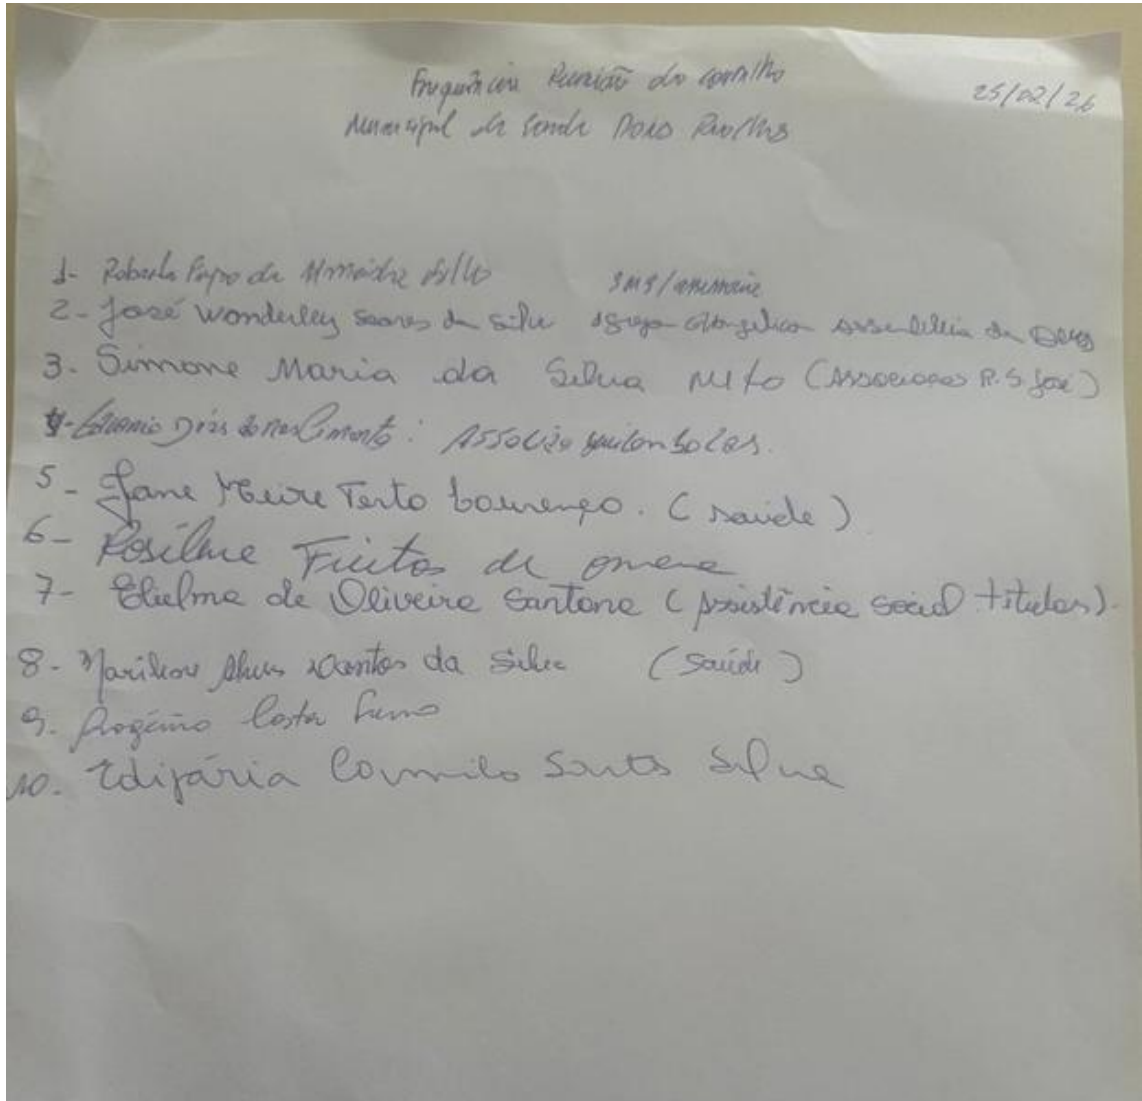 Frequência Reunião do Conselho
25/02/26
Municipal de Saúde Dois Riachos
1- Roberto de Almeida Filho SMS/
2- José Wanderley Soares da Silva Igreja Evangelica Assembleia de Deus
3. Simone Maria da Silva Neto (Associacao R.S. José)
4- Dias do nascimento: quilombolas.
5- Jane Meire Terto Lourenço. (saúde)
6- Rosilene Freitas de omena
7- Elielma de Oliveira Santana (Assistência social titular).
8- Santos da Silva (Saúde)
9. Rogério Costa
10. Edijária Camilo Santos Silva